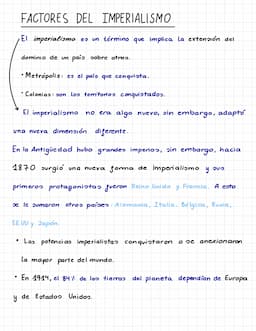 FACTORES DEL IMPERIALISMO
El imperialismo es un término que implica la extensión del
dominio de un país sobre otros.
· Metrópolis: es el país que conquista.
· Colonias: son los territorios conquistados.
El imperialismo no era algo nuevo, sin embargo, adaptó
una nueva dimensión diferente.
En la Antigüedad hubo grandes imperios, sin embargo, hacia
1870 surgió una nueva forma de Imperialismo y sus
primeros protagonistas fueron Reino Unido y Francia. A esto
se le sumaron otros países: Alemania, Italia, Bélgica, Rusia,
EEUU y Japón.
• Las potencias imperialistas conquistaron o se anexionaron
la mayor parte del mundo.
• En 1914, el 84% de las tierras del planeta dependían de Europa
y de Estados Unidos.